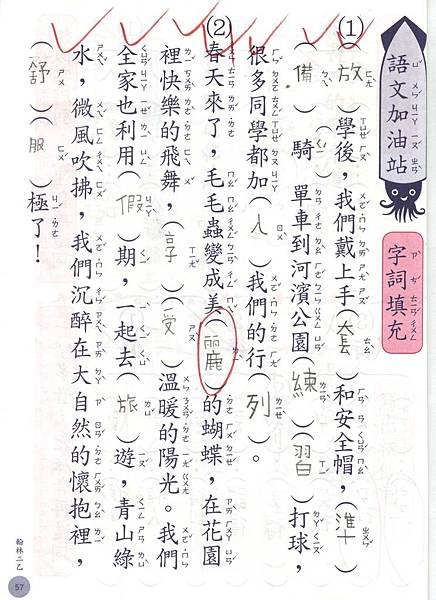 語文加油站
字詞填充
(1)（放）學後，我們戴上手（套）和安全帽，（準）
（備）騎單車到河濱公園（練）（習）打球，
很多同學都加（入）我們的行（列）。
(2)春天來了，毛毛蟲變成美（麗）的蝴蝶，在花園
裡快樂的飛舞，（享）（受）溫暖的陽光。我們
全家也利用（假）期，一起去（旅）遊，青山綠
水，微風吹拂，我們沉醉在大自然的懷抱裡，
（舒）（服）極了！
翰林二乙
57